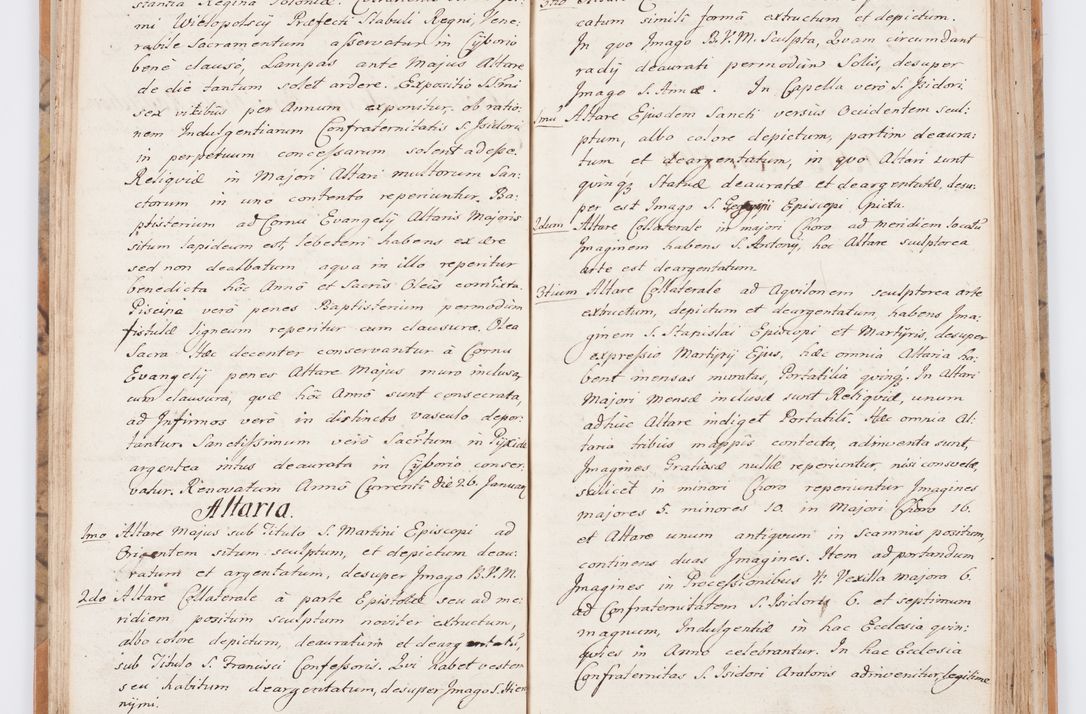 mi Wielopolscij Præfecti Stabuli Regni, Vene:
rabile Sacramentum asservatur in Cijborio
benè clausô, Lampas ante Majus Altare
de die tantum solet ardere. Expositio SSmi
sex vicibus per Annum exponitur, ob ratio:
nem Indulgentiarum Confraternitatis S. Isidori
in perpetuum concessarum solent adesse.
Reliquiæ in Majori Altari multorum San:
ctorum in uno contento reperiuntur. Ba:
ptisterium ad Cornu Evangelij Altaris Majoris
situm lapideum est, lebetem habens ex ære
sed non dealbatum aqua in illo reperitur
benedicta hôc Annô et Sacris Oleis commixta.
Piscina verò penes Baptisterium permodum
fistulæ ligneum reperitur cum clausura, Olea
Sacra Hæc decenter conservantur â Cornu
Evangelij penes Altare Majus muro inclusa,
cum clausura, quæ hôc Annô sunt consecrata,
ad Infirmos verò in distincto vasculo depor:
tantur. Sanctissimum verò Sacrtum in Pijxide
argentea intus deaurata in Cijborio conser:
vatur. Renovatum Annô Currenti die 26. Januarij
Altaria.
1mo Altare Majus sub Titulo S. Martini Episcopi ad
Orientem situm sculptum, et depictum deau:
ratum et argentatum, desuper Imago B.V.M.
2do Altare Collaterale â parte Epistolæ seu ad me:
ridiem positum sculptum noviter extructum,
albo colore depictum, deauratum et deargentatũ,
sub Titulo S. Francisci Confessoris. Qui habet vestem
seu habitum deargentatum, desuper Imago S. Hiero
nijmi.
3tio
catum simili formâ extructum et depictum.
In quo Imago B.V.M. Sculpta, Quam circumdant
radij deaurati permodum Solis, desuper
Imago S. Annæ. In Capella verò S. Isidori,
1mũ Altare Ejusdem Sancti versùs Occidentem scul:
ptum, albo colore depictum, partim deaura:
tum et deargentatum, in quo Altari sunt
quinq; Statuæ deauratæ et deargentatæ, desu:
per est Imago S. Episcopi picta.
2dum Altare Collaterale in majori Choro ad meridiem locatũ
Imaginem habens S. Antonij, hoc Altare sculptorea
arte est deargentatum.
3tium Altare Collaterale ad Aquilonem sculptorea arte
extructum, depictum et deargentatum, habens Ima:
ginem S. Stanislai Episcopi et Martijris, desuper
expressio Martijrij Ejus, hæc omnia Altaria ha:
bent mensas muratas, Portatilia quinq;. In Altari
Majori Mensæ inclusæ sunt Reliquiæ, unum
adhuc Altare indiget Portatili. Hæc omnia Al:
taria tribus mappis contecta, adinventa sunt,
Imagines Gratiosæ nullæ reperiuntur, nisi consvetæ,
scilicet in minori Choro reperiuntur Imagines
majores 5. minores 10. in Majori Choro 16.
et Altare unum antiquum in scamnis positum,
continens duas Imagines. Item ad portandum
Imagines in Processionibus 4. Vexilla majora 6.
ad Confraternitatem S. Isidori 6. et septimum
magnum, Indulgentiæ in hac Ecclesia quin:
quies in Annô celebrantur. In hac Ecclesia
Confraternitas S. Isidori Aratoris adinvenitur, legitime